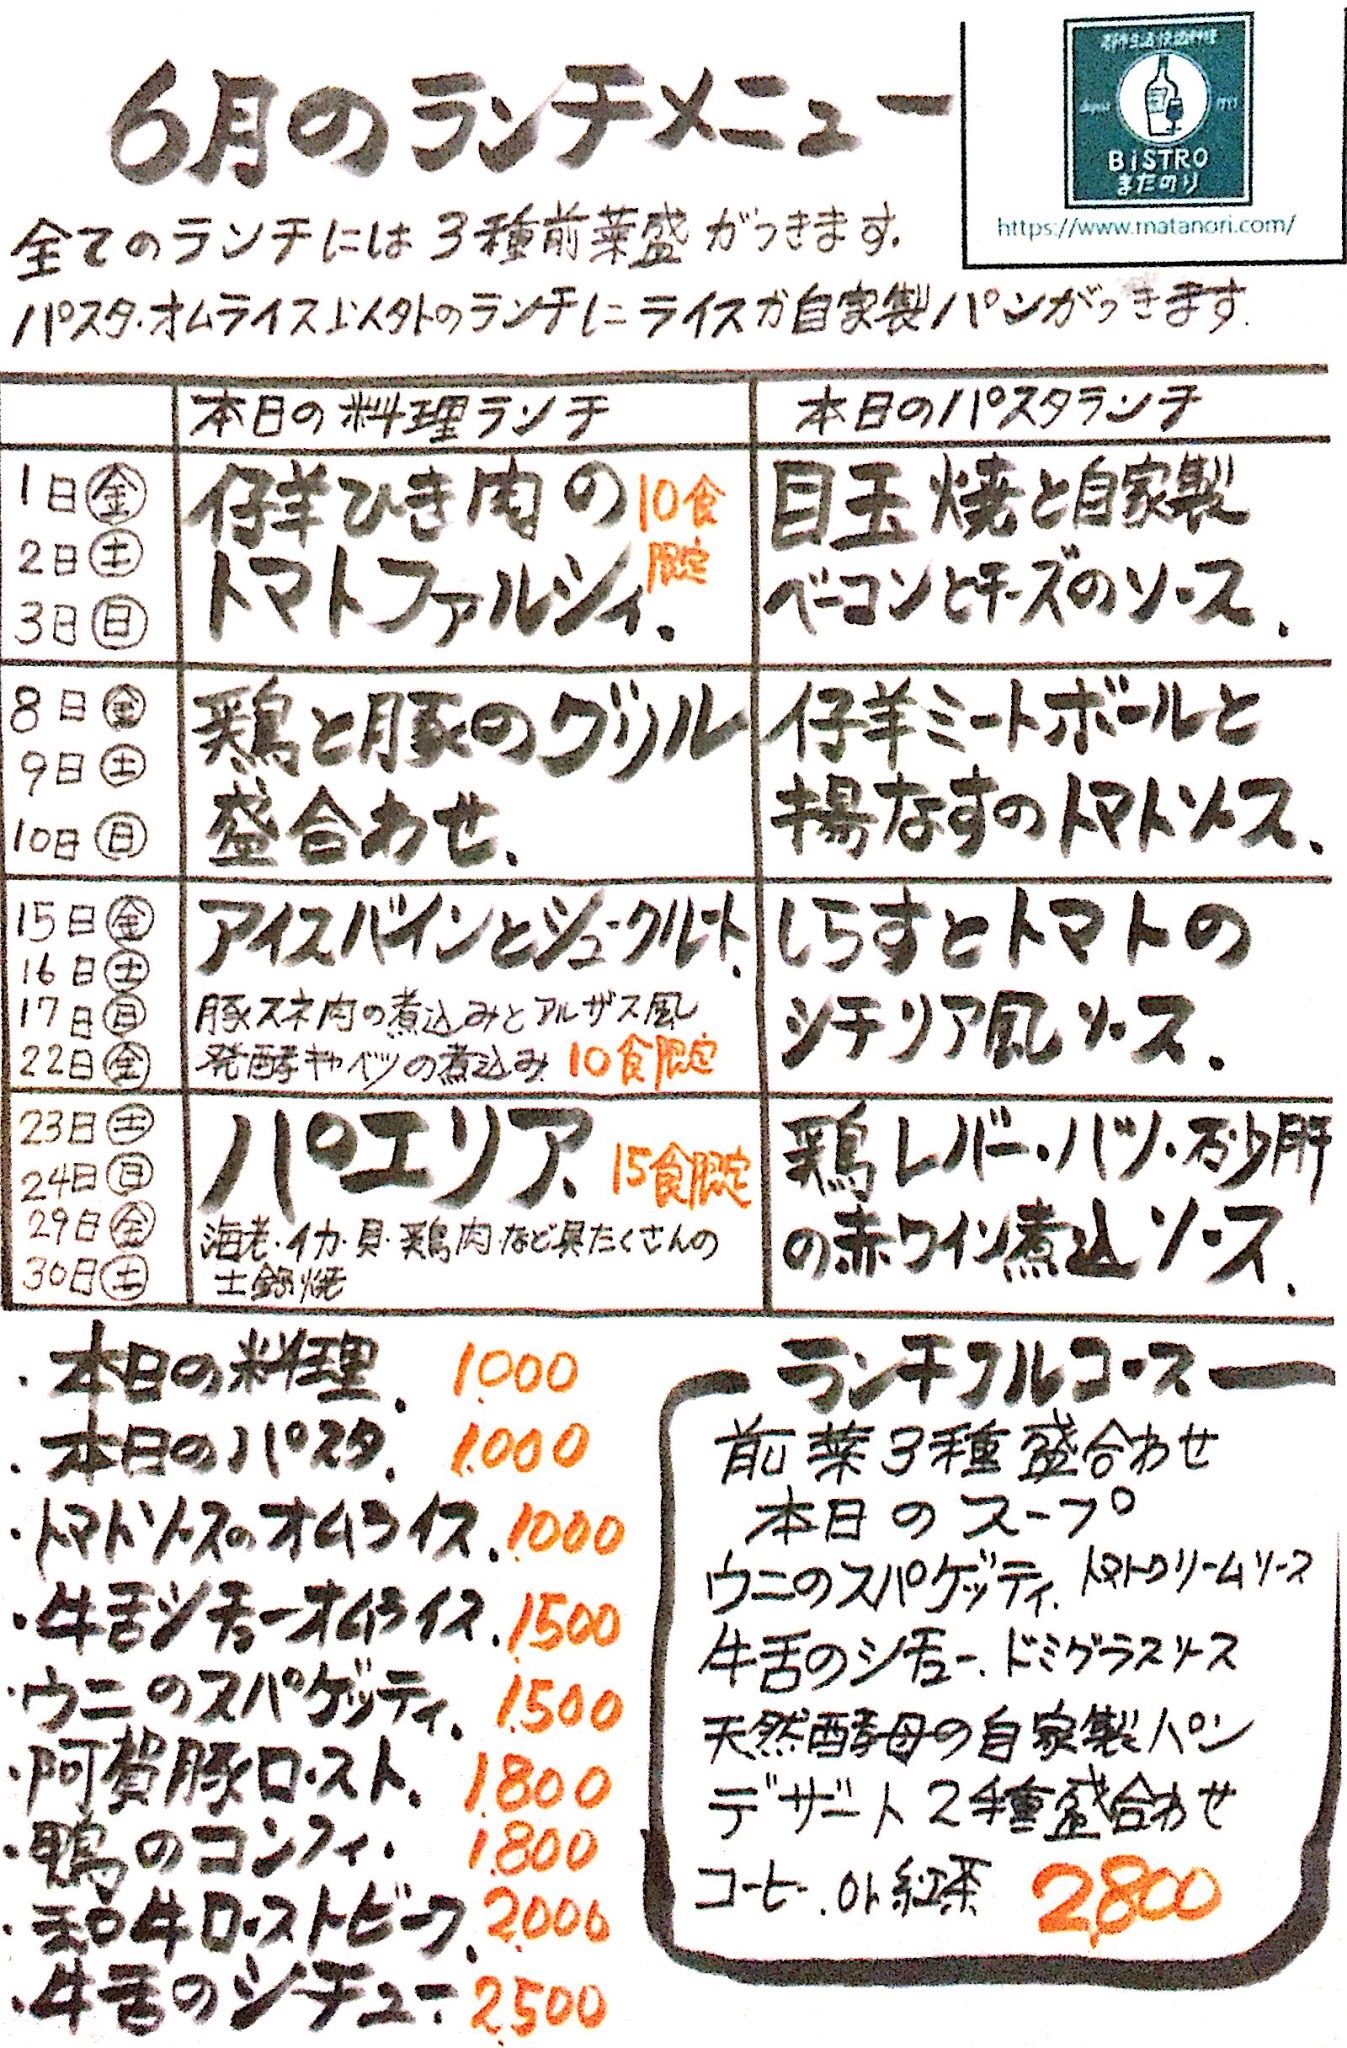 6月のランチメニュー
BiSTRO
またのり
https://www.matanori.com/
全てのランチには3種前菜盛がつきます.
パスタ・オムライス以外のランチにライスか自家製パンがつきます.
本日の料理ランチ
本日のパスタランチ
1日㊎
2日㊏
3日㊐
仔羊ひき肉の
トマトファルシィ.
10食
限定
目玉焼と自家製
ベーコンとチーズのソース.
8日㊎
9日㊏
10日㊐
鶏と豚のグリル
盛合わせ.
仔羊ミートボールと
揚なすのトマトソース.
15日㊎
16日㊏
17日㊐
22日㊎
アイスバインとシュークルート.
豚スネ肉の煮込みとアルザス風
発酵キャベツの煮込み 10食限定
しらすとトマトの
シチリア風ソース.
23日㊏
24日㊐
29日㊎
30日㊏
パエリア. 15食限定
海老・イカ・貝・鶏肉・など具たくさんの
土鍋焼
鶏レバー・ハツ・砂肝
の赤ワイン煮込ソース.
・本日の料理. 1000
・本日のパスタ. 1.000
・トマトソースのオムライス. 1000
・牛舌シチューオムライス. 1500
・ウニのスパゲッティ. 1.500
・阿賀豚ロースト. 1.800
・鴨のコンフィ. 1.800
・和牛ローストビーフ. 2.000
・牛舌のシチュー 2.500
ランチフルコース
前菜3種盛合わせ
本日のスープ
ウニのスパゲッティ. トマトクリームソース
牛舌のシチュー. ドミグラスソース
天然酵母の自家製パン
デザート2種盛合わせ
コーヒー. or 紅茶 2,800